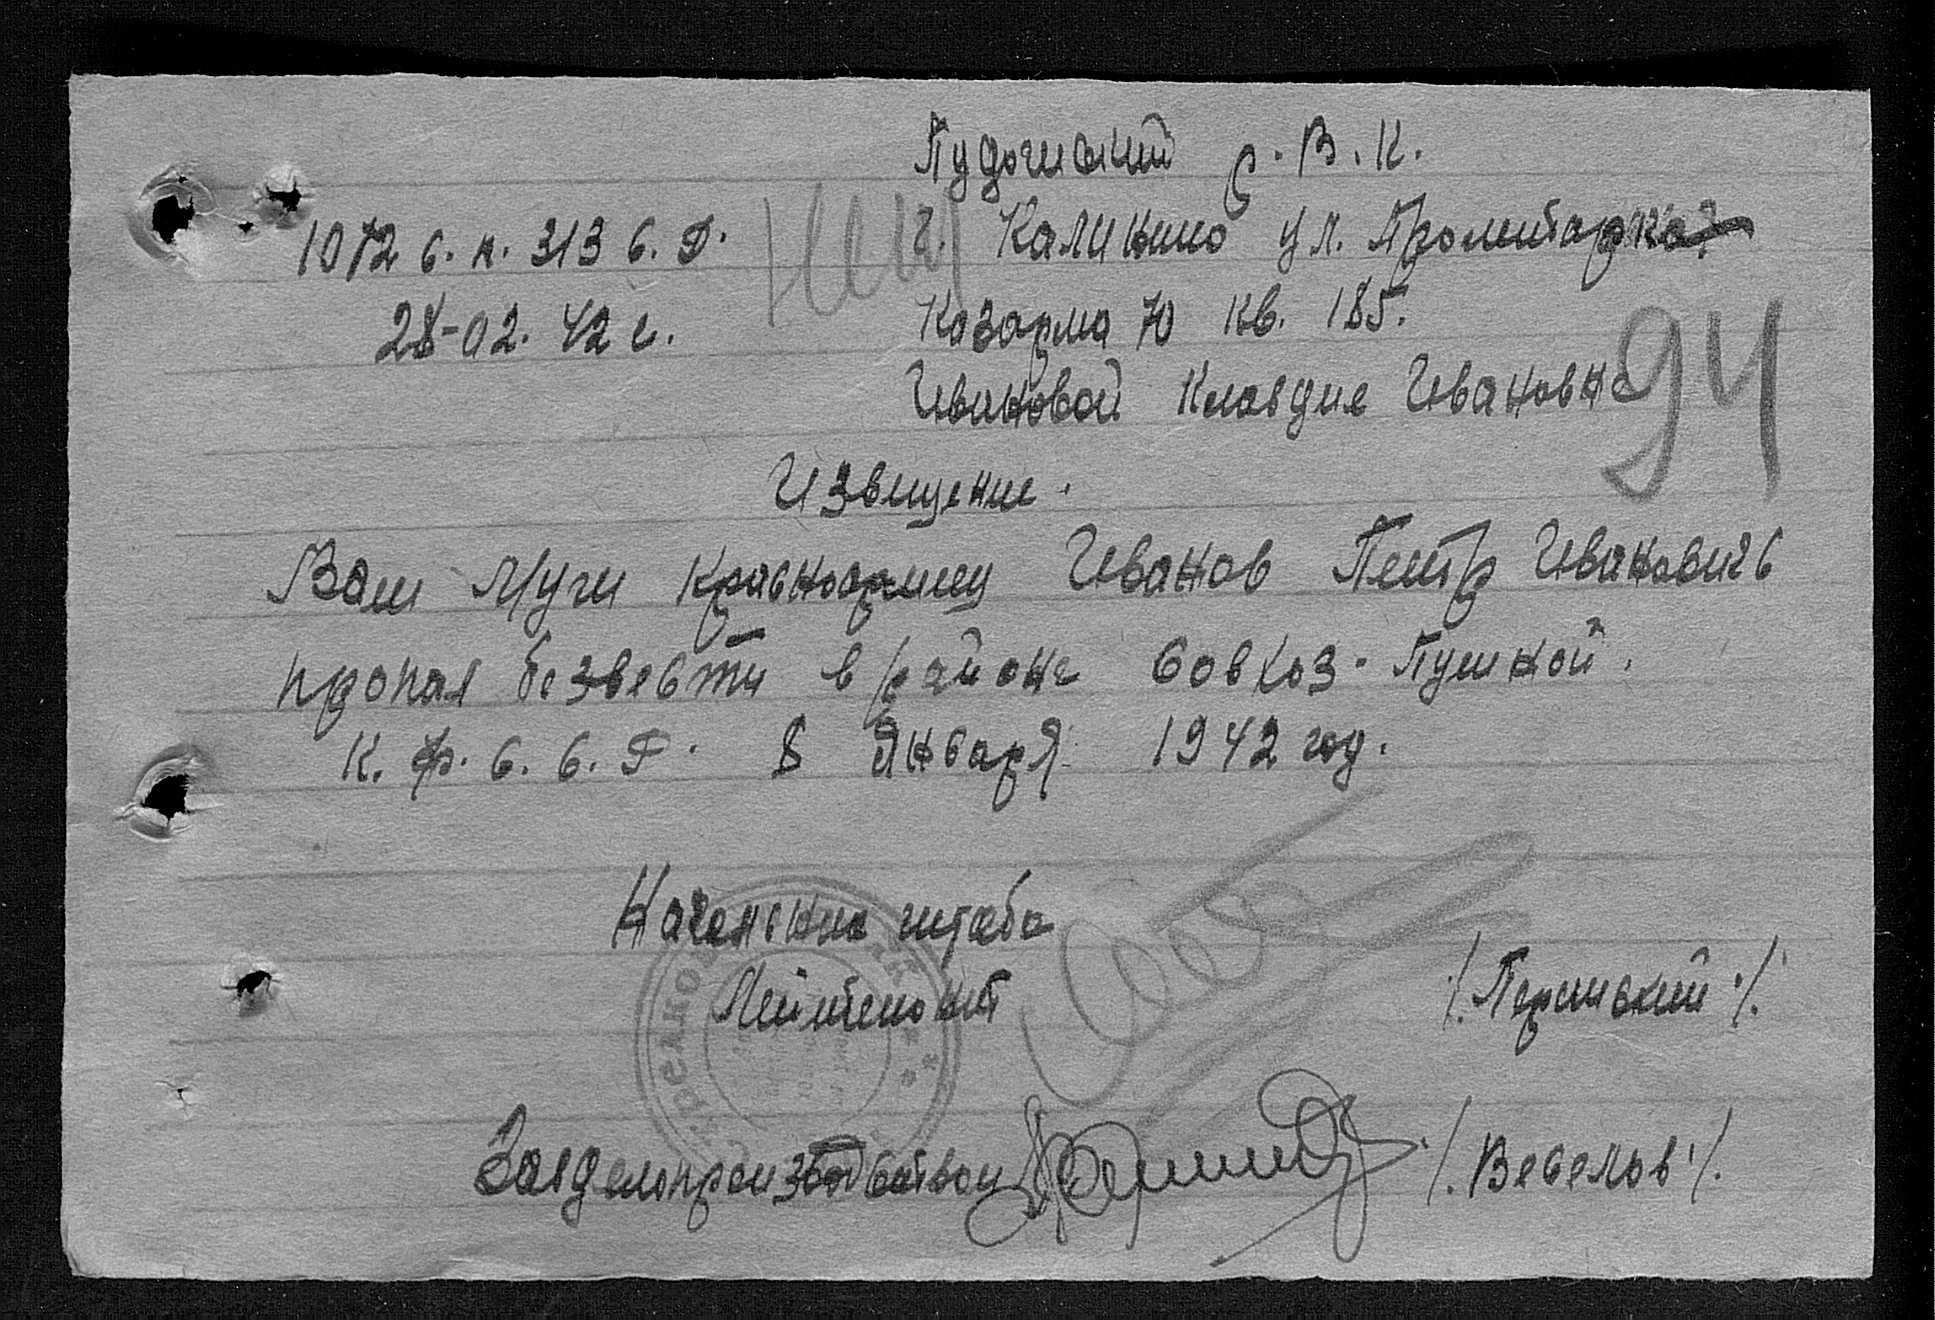 Пудочский р.В.К.
1072 с.п. 313 с.д.
г. Калинино ул. Пролетарказ
28-02.42 г.
Казарма 70 кв. 185.
Ивановой Клавдие Ивановне
94
Извещение.
Ваш Муги Красноармеец Иванов Петр Ивановичь
пропал безвести в районе совхоз-Пушной.
К.ф.С.С.Р. 8 Января 1942 год.
Начальник штаба
Лейтенант
/. Першевский ./.
Завделопроизводством
/. Веселов ./.